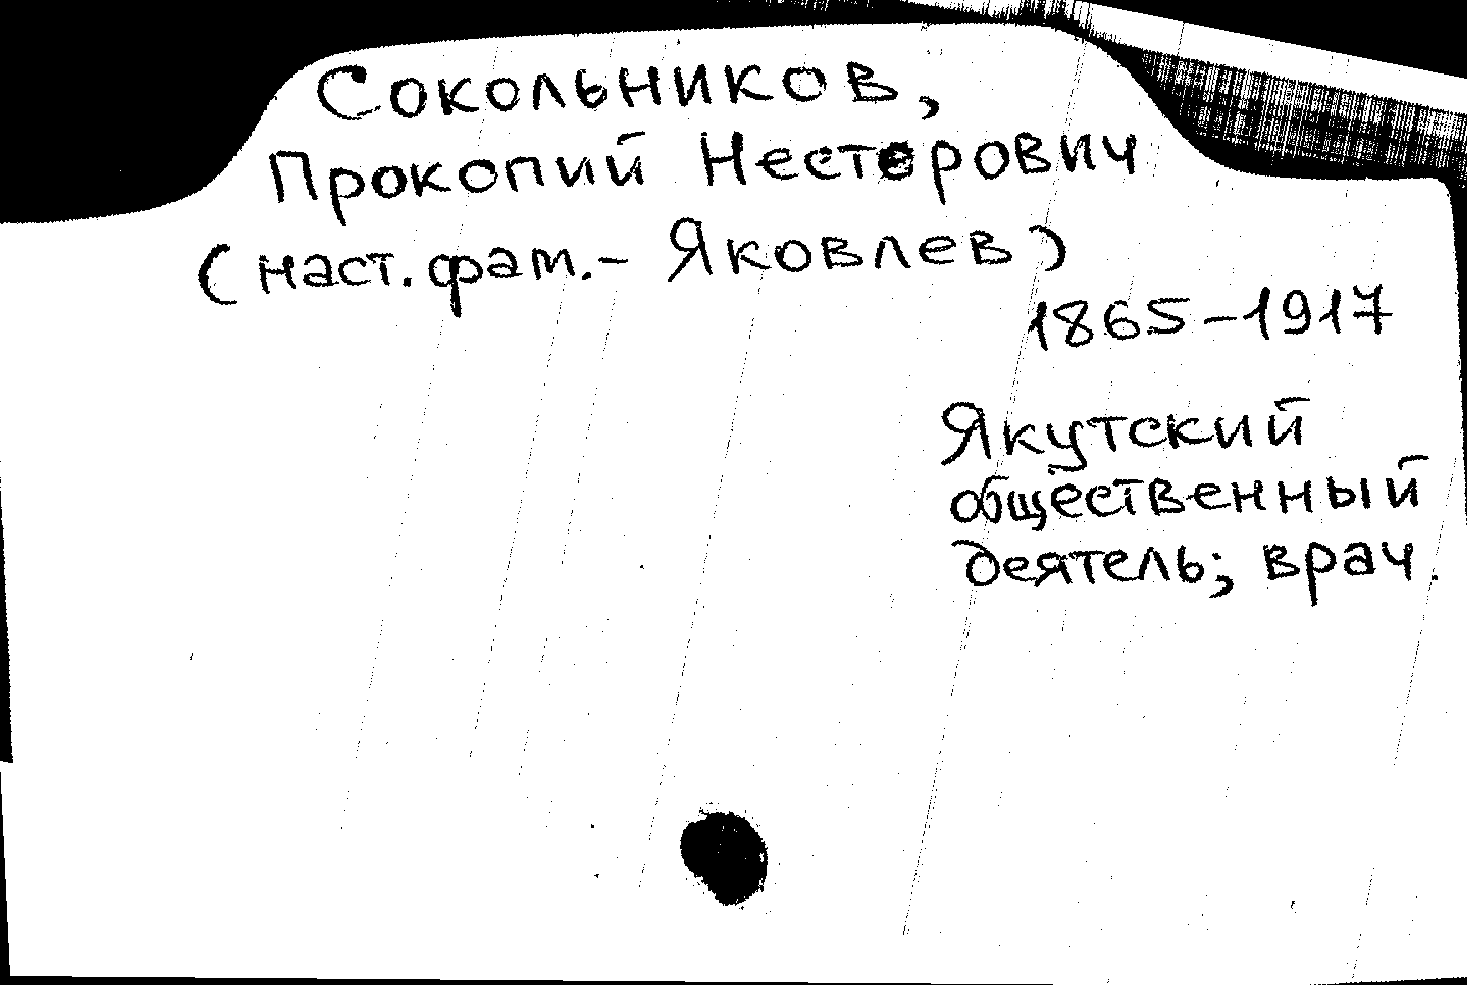 Сокольников,
Прокопий Нестерович
(наст. фам. – Яковлев)
1865–1917
Якутский
общественный
деятель; врач.